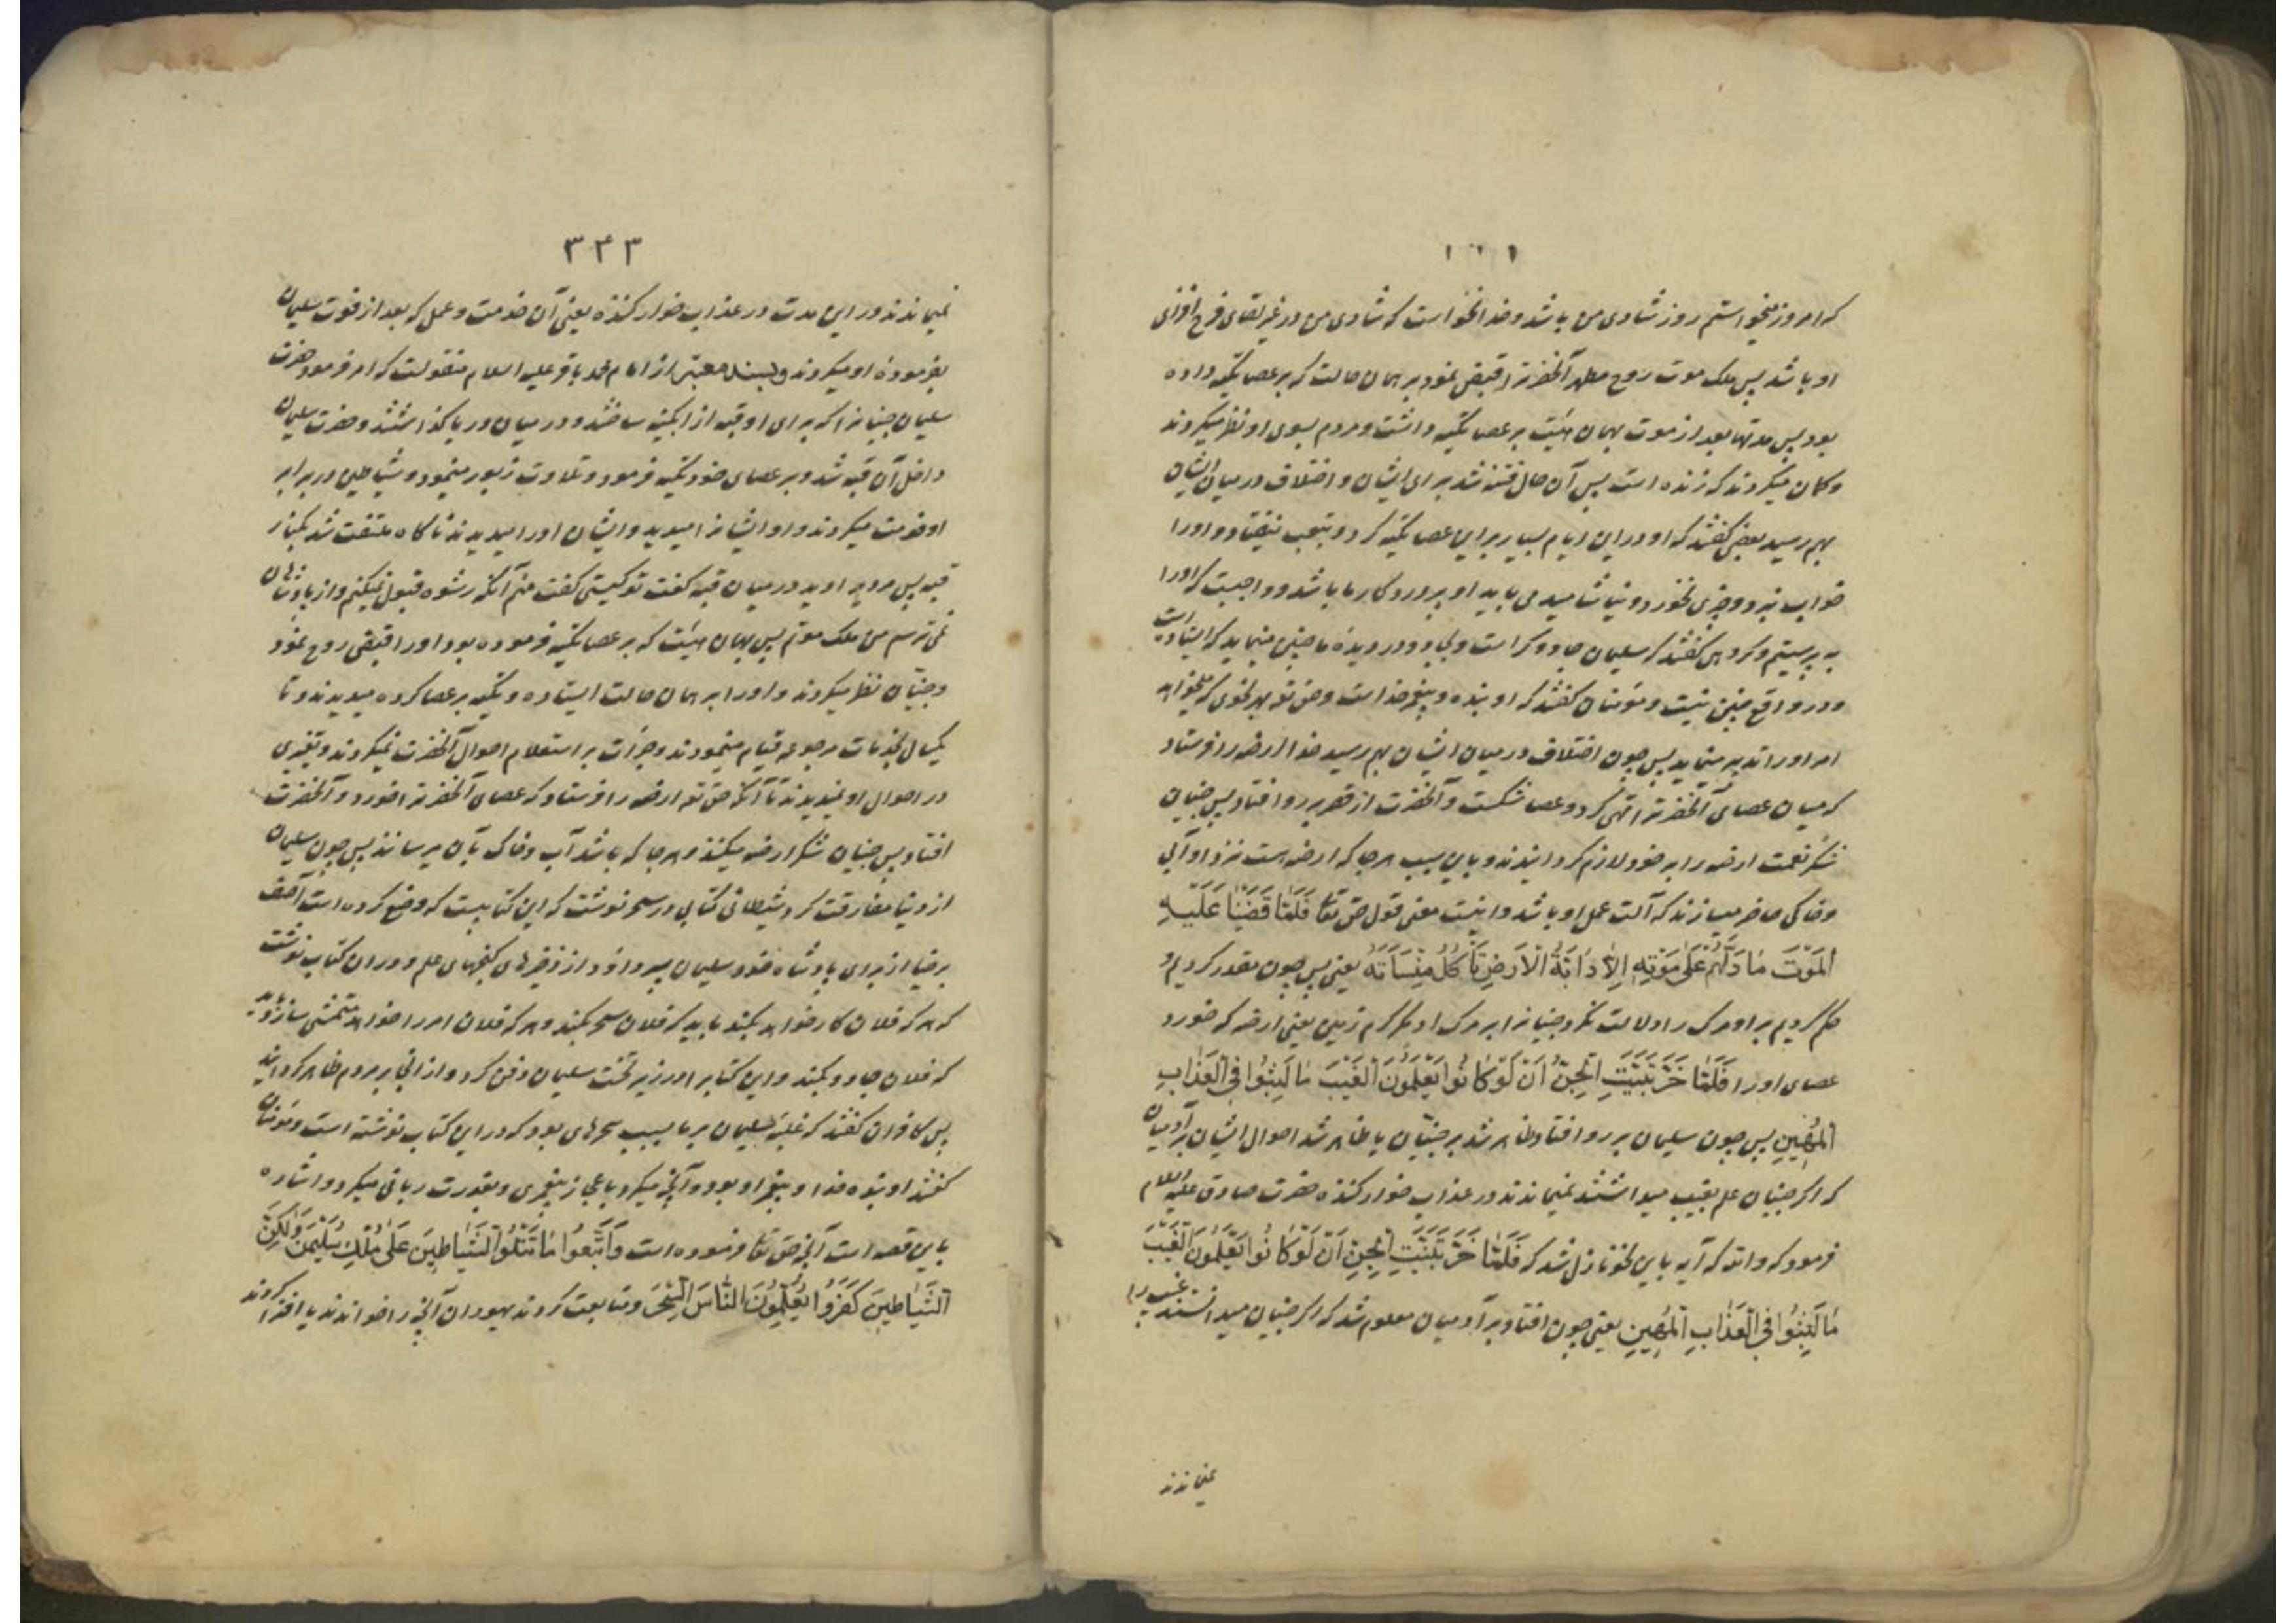 که امروز میخواستم روز شادی من باشد و خدا نخواست که شادی من در غیر لقای فرح افزای
او باشد پس ملک موت روح مطهر آنحضرترا قبض نمود بر همان حالت که بر عصا تکیه داده
بود پس مدتها بعد از موت بهمان هیئت بر عصا تکیه داشت و مردم بسوی او نظر میکردند
و گمان میکردند که زنده است پس آن حال فتنه شد برای ایشان و اختلاف در میان ایشان
بهم رسید بعضی گفتند که او در این ایام بسیار بر این عصا تکیه کرد و بتعب نیفتاد و اورا
خواب نبرد و چیزی نخورد و نیاشامید می باید او پروردگار ما باشد و واجبست که اورا
به پرستیم و گروهی گفتند که سلیمان جادوگر است و بجادو در دیدۀ ما چنین مینماید که ایستاده است
و در واقع چنین نیست و مؤمنان گفتند که او بنده و پیغمبر خداست و حق تع بهر نحوی که میخواهد
امر اورا تدبیر مینماید پس چون اختلاف در میان ایشان بهم رسید خدا ارضه را فرستاد
که میان عصای آنحضرترا تهی کرد و عصا شکست و آنحضرت از قصر برو افتاد پس جنیان
شکر نعمت ارضه را بر خود لازم گردانیدند و باین سبب هر جا که ارضه هست نزد او آبی
و خاکی حاضر میسازند که آلت عمل او باشد و اینست معنی قول حق تعا فَلَمّٰا قَضَيْنٰا عَلَيْهِ
الْمَوْتَ مٰا دَلَّهُمْ عَلٰى مَوْتِهِ اِلاّٰ دٰابَّةُ الْاَرْضِ تَأْكُلُ مِنْسَأَتَهُ یعنی پس چون مقدر کردیم و
حکم کردیم بر او مرک را دلالت نکرد جنیانرا بر مرک او مگر کرم زمین یعنی ارضه که خورد
عصای اورا فَلَمّٰا خَرَّ تَبَيَّنَتِ الْجِنُّ اَنْ لَوْ كٰانُوا يَعْلَمُونَ الْغَيْبَ مٰا لَبِثُوا فِى الْعَذٰابِ
الْمُهِينِ پس چون سلیمان برو افتاد ظاهر شد بر جنیان یا ظاهر شد احوال ایشان بر آدمیان
که اگر جنیان علم بغیب میداشتند نمیماندند در عذاب خوار کننده حضرت صادق علیه السلام
فرمود که والله که آیه باین نحو نازل شد که فَلَمّٰا خَرَّ تَبَيَّنَتِ الْجِنُّ اَنْ لَوْ كٰانُوا يَعْلَمُونَ الْغَيْبَ
مٰا لَبِثُوا فِى الْعَذٰابِ الْمُهِينِ یعنی چون افتاد بر آدمیان معلوم شد که اگر جنیان میدانستند غیب را
نمیماندند
۳۴۳
نمیماندند در این مدت در عذاب خوار کننده یعنی آن خدمت و عمل که بعد از فوت سلیمان
بفرمودۀ او میکردند و بسند معتبر از امام محمد باقر علیه السلام منقولست که امر فرمود حضرت
سلیمان جنیانرا که برای او قبه از آبگینه ساختند و در میان دریا گذاشتند و حضرت سلیمان
داخل آن قبه شد و بر عصای خود تکیه فرمود و تلاوت زبور مینمود و شیاطین در برابر
او خدمت میکردند و او ایشانرا میدید و ایشان اورا میدیدند ناگاه ملتفت شد بکنار
قبه پس مردیرا دید در میان قبه گفت تو کیستی گفت منم آنکه رشوه قبول نمیکنم و از پادشاهان
نمی ترسم من ملک موتم پس بهمان هیئت که بر عصا تکیه فرموده بود اورا قبض روح نمود
و جنیان نظر میکردند و اورا بر همان حالت ایستاده و تکیه بر عصا کرده میدیدند و تا
یکسال بخدمات مرجوعه قیام مینمودند و جرأت بر استعلام احوال آنحضرت نمیکردند و تغیری
در احوال او نمیدیدند تا آنکه حق تع ارضه را فرستاد که عصای آنحضرترا خورد و آنحضرت
افتاد پس جنیان شکر ارضه میکنند و هر جا که باشد آب و خاک بآن میرسانند پس چون سلیمان
از دنیا مفارقت کرد شیطانی کتابی در سحر نوشت که این کتابیست که وضع کرده است آصف
برخیا از برای پادشاه خود سلیمان پسر داؤد از ذخیرهای گنجهای علم و در ان کتاب نوشت
که هر که فلان کار خواهد بکند باید که فلان سحر بکند و هر که فلان امر را خواهد متمشی سازد باید
که فلان جادو بکند و این کتابرا در زیر تخت سلیمان دفن کرد و از انجا بر مردم ظاهر گردانید
پس کافران گفتند که غلبۀ سلیمان بر ما بسبب سحرهای بود که در این کتاب نوشته است و مؤمنان
گفتند او بنده خدا و پیغمبر او بود و آنچه میکرد باعجاز پیغمبری و بقدرت ربانی میکرد و اشاره
باین قصه است آنچه حق تعا فرموده است وَاتَّبَعُوا مٰا تَتْلُوا الشَّيٰاطِينَ عَلٰى مُلْكِ سُلَيْمٰنَ وَلٰكِنَّ
الشَّيٰاطِينَ كَفَرُوا يُعَلِّمُونَ النّٰاسَ السِّحْرَ و متابعت کردند یهودان آنچه را خواندند یا افترا کردند